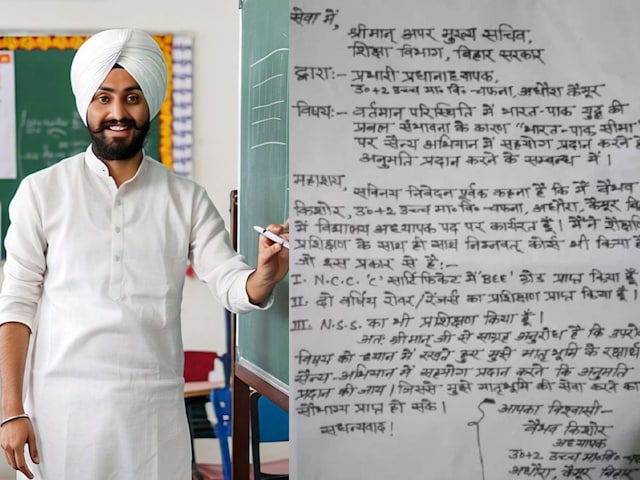 सेवा में,
श्रीमान् अपर मुख्य सचिव,
शिक्षा विभाग, बिहार सरकार
द्वारा:- प्रभारी प्रधानाध्यापक,
उ०+2 उच्च मा० वि०-चफना, अधौरा कैमूर
विषय:- वर्तमान परिस्थिति में भारत-पाक युद्ध की
प्रबल संभावना के कारण "भारत-पाक सीमा"
पर सैन्य अभियान में सहयोग प्रदान करने हे
अनुमति प्रदान करने के सम्बन्ध में।
महाशय,
सविनय निवेदन पूर्वक कहना है कि मैं वैभव
किशोर, उ०+2 उच्च मा० वि०-चफना, अधौरा, कैमूर बि
में विद्यालय अध्यापक पद पर कार्यरत हूँ। मैंने शैक्षणि
प्रशिक्षण के साथ ही साथ निम्नवत् कोर्स भी किया है
जो इस प्रकार से है:-
I. N.C.C. 'C' सार्टिफिकेट में 'BEE' ग्रेड प्राप्त किया हूँ।
II. दो वर्षिय रोवर/रेंजर्स का प्रशिक्षण प्राप्त किया हूँ।
III. N.S.S. का भी प्रशिक्षण किया हूँ।
अतः श्रीमान् जी से साग्रह अनुरोध है कि उपरो
विषय को ध्यान में रखते हुए मुझे मातृभूमि के रक्षार्थ
सैन्य-अभियान में सहयोग प्रदान करने कि अनुमति
प्रदान की जाय। जिससे मुझे मातृभूमि की सेवा करने का
सौभाग्य प्राप्त हो सके।
सधन्यवाद!
आपका विश्वासी-
वैभव किशोर
अध्यापक
उ०+2 उच्च मा० वि०-च
अधौरा, कैमूर बिहार